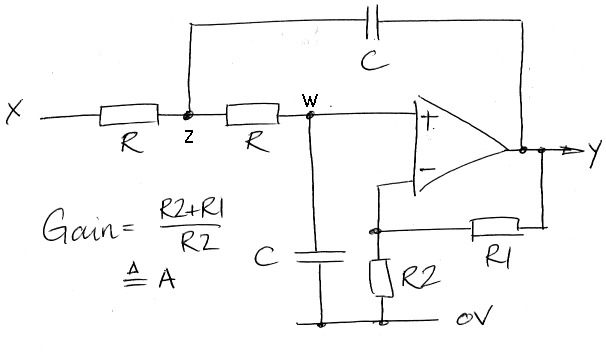 C
X
R
Z
R
W
+
-
Y
Gain = R2+R1
R2
≜ A
C
R2
R1
0V